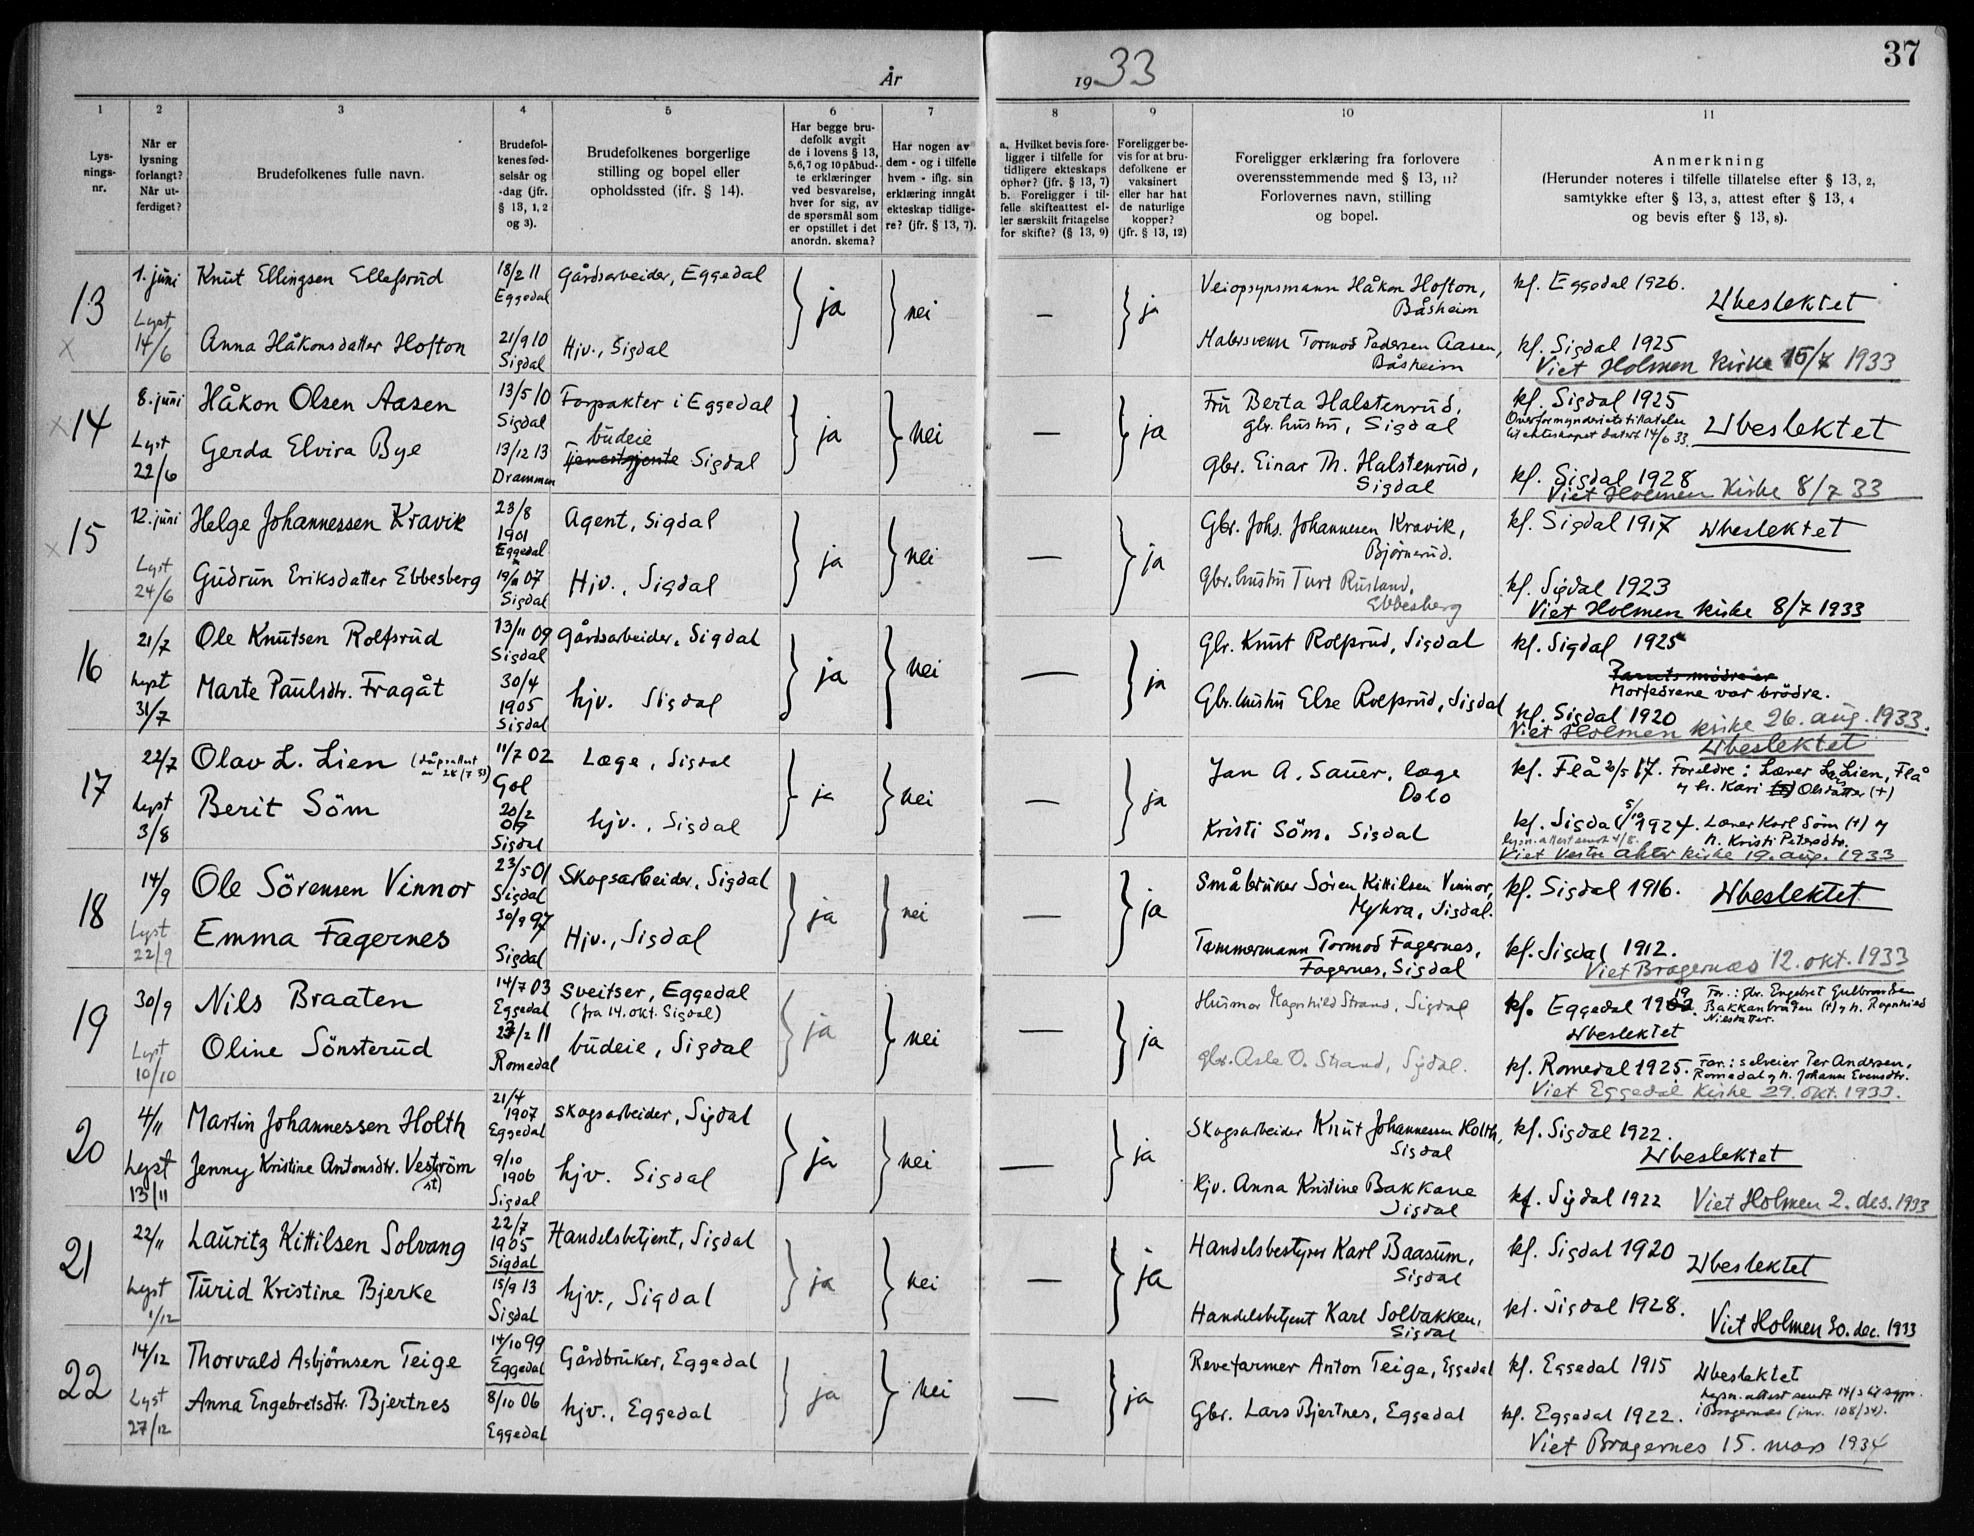 37
År 1933
1 2 3 4 5 6 7 8 9 10 11
Lysningsnr.
Når er lysning forlangt? Når utferdiget?
Brudefolkenes fulle navn.
Brudefolkenes fødselsår og -dag (jfr. § 13, 1, 2 og 3).
Brudefolkenes borgerlige stilling og bopel eller opholdssted (ifr. § 14).
Har begge brudefolk avgit de i lovens § 13, 5,6,7 og 10 påbudte erklæringer ved besvarelse, hver for sig, av de spørsmål som er opstillet i det anordn. skema?
Har nogen av dem - og i tilfelle hvem - iflg. sin erklæring inngåt ekteskap tidligere? (jfr. § 13, 7).
a. Hvilket bevis foreligger i tilfelle for tidligere ekteskaps ophør? (jfr. § 13, 7) b. Foreligger i tilfelle skifteattest eller særskilt fritagelse for skifte? (§ 13, 9)
Foreligger bevis for at brudefolkene er vaksinert eller har hat de naturlige kopper? (jfr. § 13, 12)
Foreligger erklæring fra forlovere overensstemmende med § 13, 11? Forlovernes navn, stilling og bopel.
Anmerkning (Herunder noteres i tilfelle tillatelse efter § 13, 2, samtykke efter § 13, 3, attest efter § 13, 4 og bevis efter § 13, 8).
13 x 1. juni Knut Ellingsen Ellefsrud 18/2 11 Eggedal Gårdsarbeider, Eggedal ja nei — ja Veiopsynsmann Håkon Hofton, Båsheim kf. Eggedal 1926. Ubeslektet
Lyst 14/6 Anna Håkonsdatter Hofton 21/9 10 Sigdal Hjv., Sigdal Malersvenn Tormod Pedersen Aasen, Båsheim kf. Sigdal 1925
Viet Holmen kirke 15/7 1933
x 14 8. juni Håkon Olsen Aasen 13/5 10 Sigdal Forpakter i Eggedal ja nei — ja Fru Berta Halstenrud, gbr. hustru, Sigdal kf. Sigdal 1925
Overformynderiets tillatelse til ekteskapet datert 14/6 33. Ubeslektet
Lyst 22/6 Gerda Elvira Bye 13/12 13 Drammen budeie Tjenestgjente Sigdal gbr. Einar Th. Halstenrud, Sigdal kf. Sigdal 1928
Viet Holmen Kirke 8/7 33
x 15 12. juni Helge Johannessen Kravik 23/8 1901 Eggedal Agent, Sigdal ja nei — ja Gbr. Johs. Johannesen Kravik, Bjørnerud. kf. Sigdal 1917 Ubeslektet
Lyst 24/6 Gudrun Eriksdatter Ebbesberg 07 Sigdal Hjv., Sigdal Gbr. hustru Turi Rusland, Ebbesberg kf. Sigdal 1923
Viet Holmen kirke 8/7 1933
16 21/7 Ole Knutsen Rolfsrud 13/11 09 Sigdal Gårdsarbeider, Sigdal ja nei — ja Gbr. Knut Rolfsrud, Sigdal kf. Sigdal 1925
Morfedrene var brödre.
Lyst 31/7 Marte Paulsdtr. Fragåt 30/4 1905 Sigdal hjv. Sigdal Gbr. hustru Else Rolfsrud, Sigdal kf. Sigdal 1920
Viet Holmen kirke 26. aug. 1933.
17 22/7 Olav L. Lien (dåpsattest av 28/7 33) 11/7 02 Gol Læge, Sigdal ja nei — ja Jan A. Sauer, læge Oslo Ubeslektet
kf. Flå 20/5 17. Foreldre: Lærer L. Lien, Flå og h. Kari Olsdatter (+)
Lyst 3/8 Berit Söm 20/2 09 Sigdal hjv., Sigdal Kristi Söm. Sigdal kf. Sigdal 1924. Lærer Karl Söm (+) og h. Kristi Petersdtr.
Lysn. attest sendt 4/8.
Viet Vestre aker kirke 19. aug. 1933
18 14/9 Ole Sörensen Vinnor 23/5 01 Sigdal Skogsarbeider, Sigdal ja nei — ja Småbruker Sören Kittilsen Vinnor, Myhra, Sigdal. kf. Sigdal 1916. Ubeslektet
Lyst 22/9 Emma Fagernes 30/9 97 Sigdal Hjv., Sigdal Tømmermann Tormod Fagernes, Fagernes, Sigdal kf. Sigdal 1912.
Viet Bragernæs 12. okt. 1933
19 30/9 Nils Braaten 14/7 03 Eggedal Sveitser, Eggedal (fra 14. okt. Sigdal) ja nei — ja Husmor Magnhild Strand, Sigdal kf. Eggedal 19 For.: gbr. Engebret Gulbrandsen Bakkanbråten (+) og h. Ragnhild Nilsdatter.
Ubeslektet
Lyst 10/10 Oline Sönsterud 2 11 Romedal budeie, Sigdal gbr. Asle O. Strand, Sigdal. kf. Romedal 1925. For.: selveier Per Andersen, Romedal og h. Johanne Evensdtr.
Viet Eggedal Kirke 29. okt. 1933.
20 4/11 Martin Johannessen Holth 21/4 1907 Eggedal skogsarbeider, Sigdal ja nei — ja Skogsarbeider Knut Johannessen Holth, Sigdal kf. Sigdal 1922.
Ubeslektet
Lyst 13/11 Jenny Kristine Antonsdtr. Veström (st) 9/10 1906 Sigdal hjv. Sigdal hjv. Anna Kristine Bakkane Sigdal kf. Sigdal 1922 Viet Holmen 2. des. 1933
21 22/11 Lauritz Kittilsen Solvang 22/7 1905 Sigdal Handelsbetjent, Sigdal ja nei — ja Handelsbestyrer Karl Baasum, Sigdal kf. Sigdal 1920 Ubeslektet
Lyst 1/12 Turid Kristine Bjerke 15/9 13 Sigdal hjv., Sigdal Handelsbetjent Karl Solbakken, Sigdal kf. Sigdal 1928.
Viet Holmen 30. dec. 1933
22 14/12 Thorvald Asbjörnsen Teige 14/10 99 Eggedal Gårdbruker, Eggedal ja nei — ja Revefarmer Anton Teige, Eggedal kf. Eggedal 1915 Ubeslektet
Lysn. attest sendt 14/3 til sogn. i Bragernæs (jnr. 108/34).
Lyst 27/12 Anna Engebretsdtr. Bjertnes 8/10 06 Eggedal hjv., Eggedal Gbr. Lars Bjertnes, Eggedal kf. Eggedal 1922.
Viet Bragernes 15. mars 1934